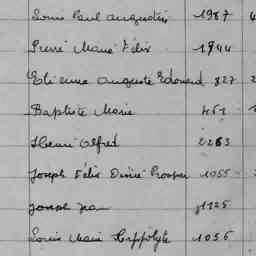 Louis Paul Augustin 1987 4
Pierre Marie Félix 1944
Etienne Auguste Edouard 827 2
Baptiste Marie 461
Henri Alfred 2263
Joseph Félix Désiré Prosper 1055
Joseph Jean 1125
Louis Marie Hippolyte 1056